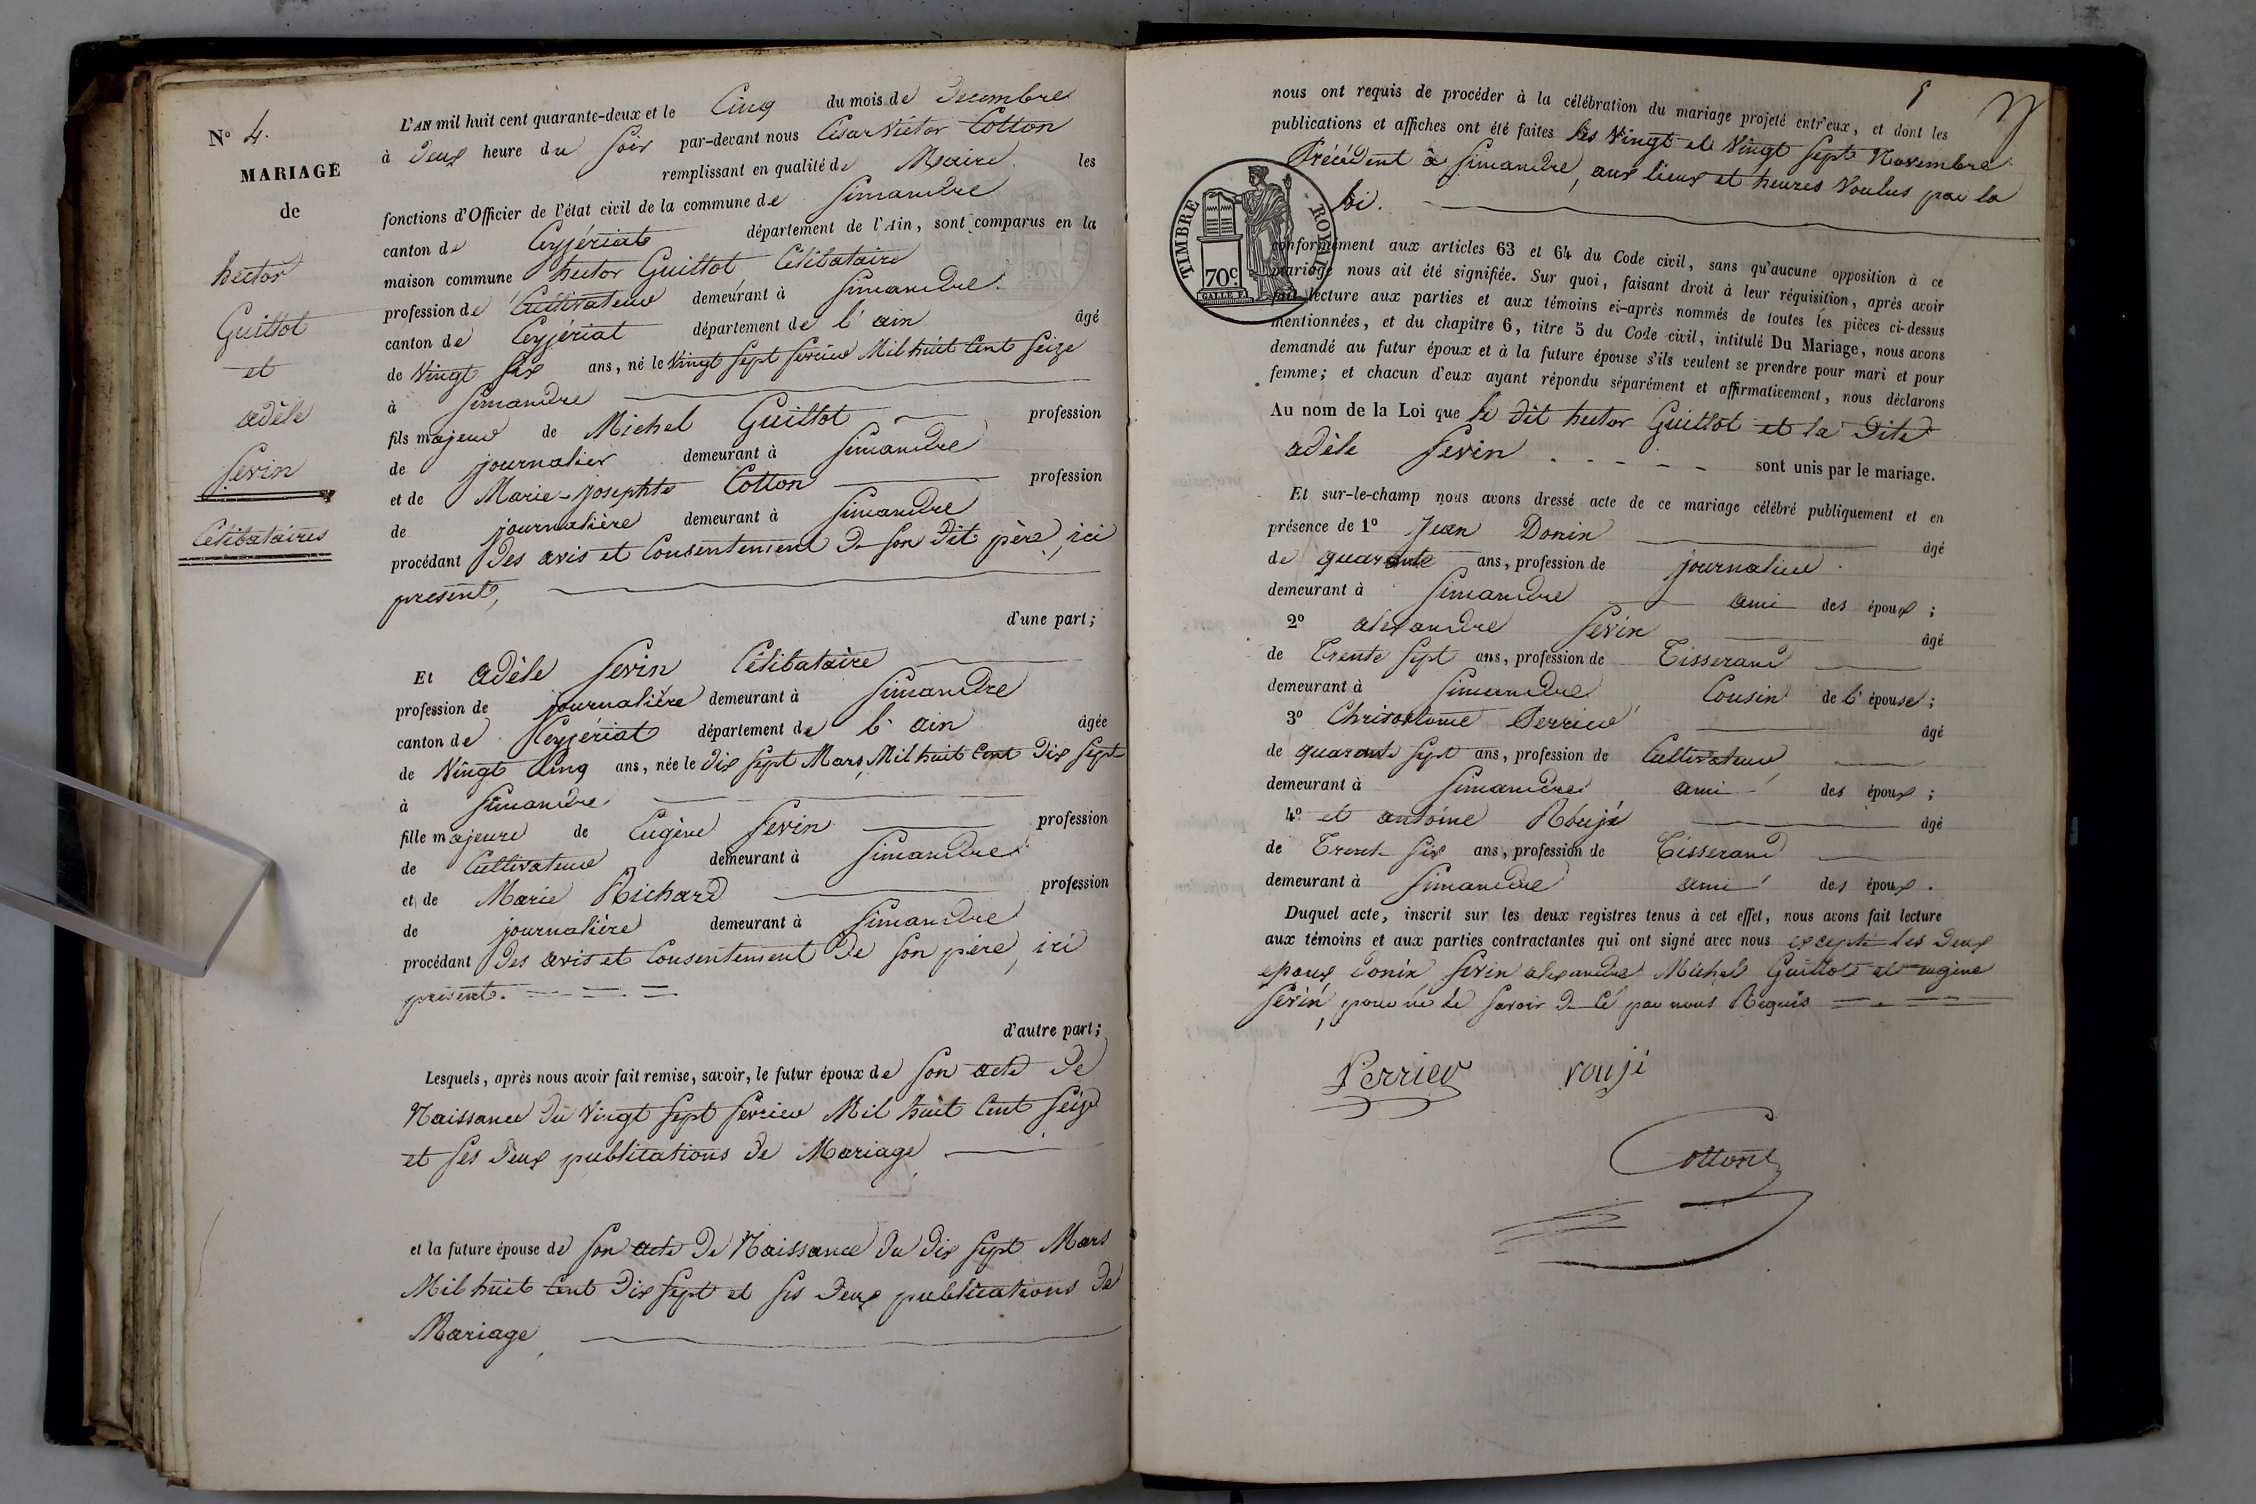 N° 4.
MARIAGE
de
hector
Guillot
et
adèle
Sevin
Célibataires
L'AN mil huit cent quarante-deux et le Cinq du mois de Decembre
à Deux heure du Soir par-devant nous César Victor Cotton
remplissant en qualité de Maire les
fonctions d'Officier de l'état civil de la commune de Simandre
canton de Ceyzériat département de l'Ain, sont comparus en la
maison commune hector Guillot Célibataire
profession de Cultivateur demeurant à Simandre
canton de Ceyzériat département de l'ain âgé
de Vingt Six ans, né le Vingt Sept fevrier Mil huit Cent Seize
à Simandre
fils majeur de Michel Guillot profession
de journalier demeurant à Simandre
et de Marie-Josephte Cotton profession
de journalière demeurant à Simandre
procédant Des avis et Consentement De Son Dit père, ici
present,
d'une part;
Et adèle Sevin Célibataire
profession de journalière demeurant à Simandre
canton de Ceyzériat département de l'ain âgée
de Vingt Cinq ans, née le Dix Sept Mars Mil huit Cent Dix Sept
à Simandre
fille majeure de Eugène Sevin profession
de Cultivateur demeurant à Simandre
et de Marie Richard profession
de journalière demeurant à Simandre
procédant Des avis et Consentement De Son père, ici
présent.
d'autre part;
Lesquels, après nous avoir fait remise, savoir, le futur époux de Son acte De
Naissance Du Vingt Sept fevrier Mil huit Cent Seize
et Ses Deux publications De Mariage
et la future épouse de Son acte De Naissance Du Dix Sept Mars
Mil huit Cent Dix Sept et Ses Deux publications De
Mariage
nous ont requis de procéder à la célébration du mariage projeté entr'eux, et dont les
publications et affiches ont été faites les Vingt et Vingt Sept Novembre
Précédent à Simandre, aux lieux et heures Voulus par la
loi.
TIMBRE ROYAL
70 c.
conformément aux articles 63 et 64 du Code civil, sans qu'aucune opposition à ce
mariage nous ait été signifiée. Sur quoi, faisant droit à leur réquisition, après avoir
fait lecture aux parties et aux témoins ci-après nommés de toutes les pièces ci-dessus
mentionnées, et du chapitre 6, titre 5 du Code civil, intitulé Du Mariage, nous avons
demandé au futur époux et à la future épouse s'ils veulent se prendre pour mari et pour
femme; et chacun d'eux ayant répondu séparément et affirmativement, nous déclarons
Au nom de la Loi que le dit hector Guillot et la Dite
adèle Sevin sont unis par le mariage.
Et sur-le-champ nous avons dressé acte de ce mariage célébré publiquement et en
présence de 1° Jean Donin âgé
de quarante ans, profession de journalier
demeurant à Simandre ami des époux;
2° alexandre Sevin âgé
de Trente Sept ans, profession de Tisserand
demeurant à Simandre Cousin de l'épouse;
3° Chrisostome Perrier âgé
de quarante Sept ans, profession de Cultivateur
demeurant à Simandre ami des époux;
4° et antoine Rouji âgé
de Trente Six ans, profession de Tisserand
demeurant à Simandre ami des époux.
Duquel acte, inscrit sur les deux registres tenus à cet effet, nous avons fait lecture
aux témoins et aux parties contractantes qui ont signé avec nous excepté les Deux
époux Donin Sevin alexandre Michel Guillot et eugène
Sevin, pour ne le Savoir De Cé par nous Requis
Perrier
rouji
Cotton